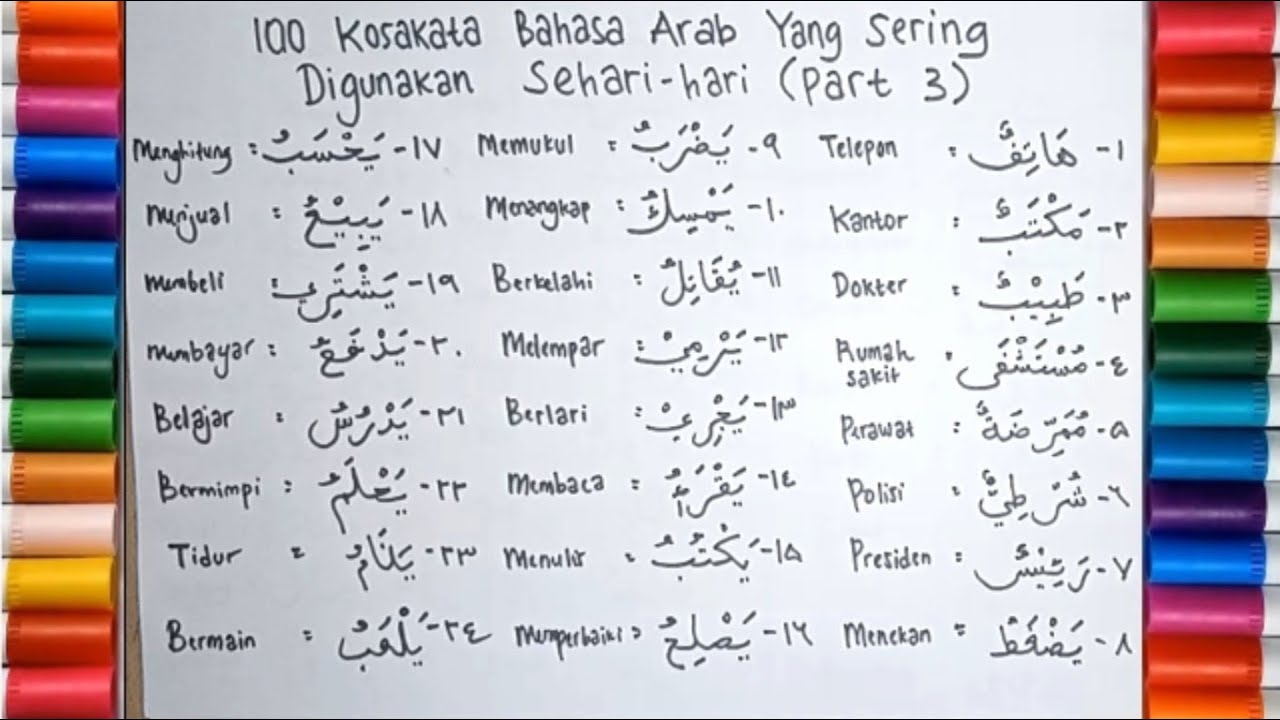 100 Kosakata Bahasa Arab Yang Sering
Digunakan Sehari-hari (Part 3)
١- هَاتِفٌ : Telepon
٢- مَكْتَبٌ : Kantor
٣- طَبِيْبٌ : Dokter
٤- مُسْتَشْفَى : Rumah sakit
٥- مُمَرِّضَةٌ : Perawat
٦- شُرْطِيٌّ : Polisi
٧- رَئِيْسٌ : Presiden
٨- يَضْغَطُ = Menekan
٩- يَضْرَبُ : Memukul
١٠- يَمْسِكُ : Menangkap
١١- يُقَاتِلُ : Berkelahi
١٢- يَرْمِيْ : Melempar
١٣- يَجْرِيْ : Berlari
١٤- يَقْرَأُ : Membaca
١٥- يَكْتُبُ : Menulis
١٦- يَصْلِحُ : Memperbaiki
١٧- يَحْسَبُ : Menghitung
١٨- يَبِيْعُ : Menjual
١٩- يَشْتَرِي : Membeli
٢٠- يَدْفَعُ : Membayar
٢١- يَدْرُسُ : Belajar
٢٢- يَحْلَمُ : Bermimpi
٢٣- يَنَامُ = Tidur
٢٤- يَلْعَبُ = Bermain